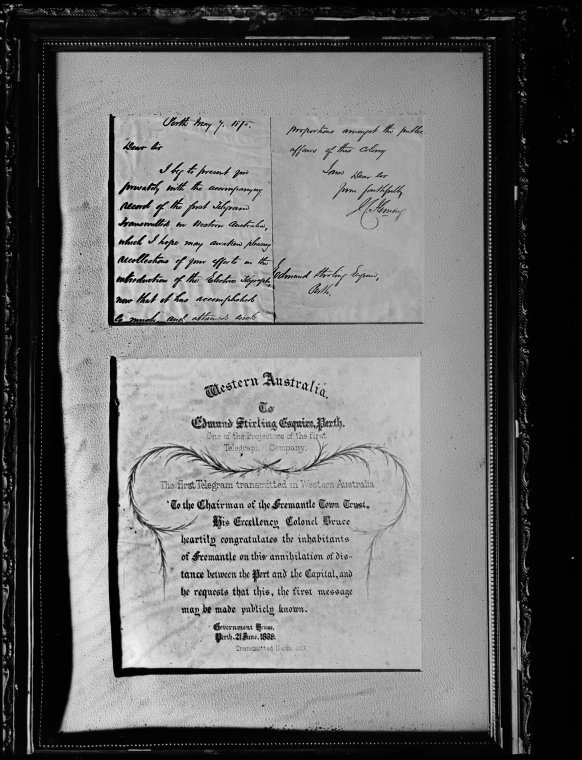 Perth May 7. 1875.
Dear Sir
I beg to present you
privately with the accompanying
record of the first Telegram
transmitted in Western Australia,
which I hope may awaken pleasing
recollections of your efforts in the
introduction of the Electric Telegraph,
now that it has accomplished
so much and attained such
proportions amongst the public
affairs of this Colony
I am Dear Sir
Yours faithfully
J C Fleming
Edmund Stirling Esquire,
Perth.
Western Australia.
To
Edmund Stirling Esquire, Perth.
One of the Projectors of the first
Telegraph Company.
The first Telegram transmitted in Western Australia
"To the Chairman of the Fremantle Town Trust.
His Excellency Colonel Bruce
heartily congratulates the inhabitants
of Fremantle on this annihilation of dis-
tance between the Port and the Capital, and
he requests that this, the first message
may be made publicly known.
Government House.
Perth. 21 June. 1869.
Transmitted